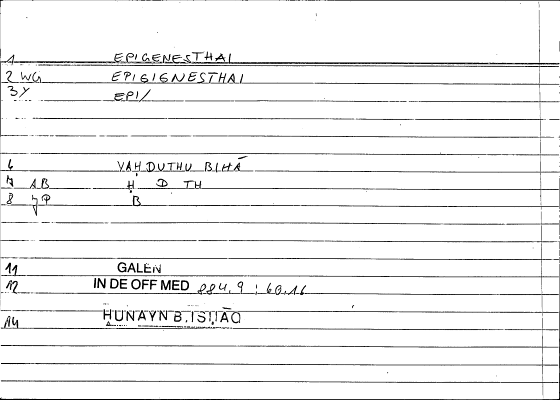 1 EPIGENESTHAI
2 WG EPIGIGNESTHAI
3 Y EPI/
6 YAḤDUTHU BIHĀ
7 AB Ḥ D TH
8 JP B
11 GALEN
12 IN DE OFF MED 884.9 : 60.16
14 ḤUNAYN B. ISḤĀQ